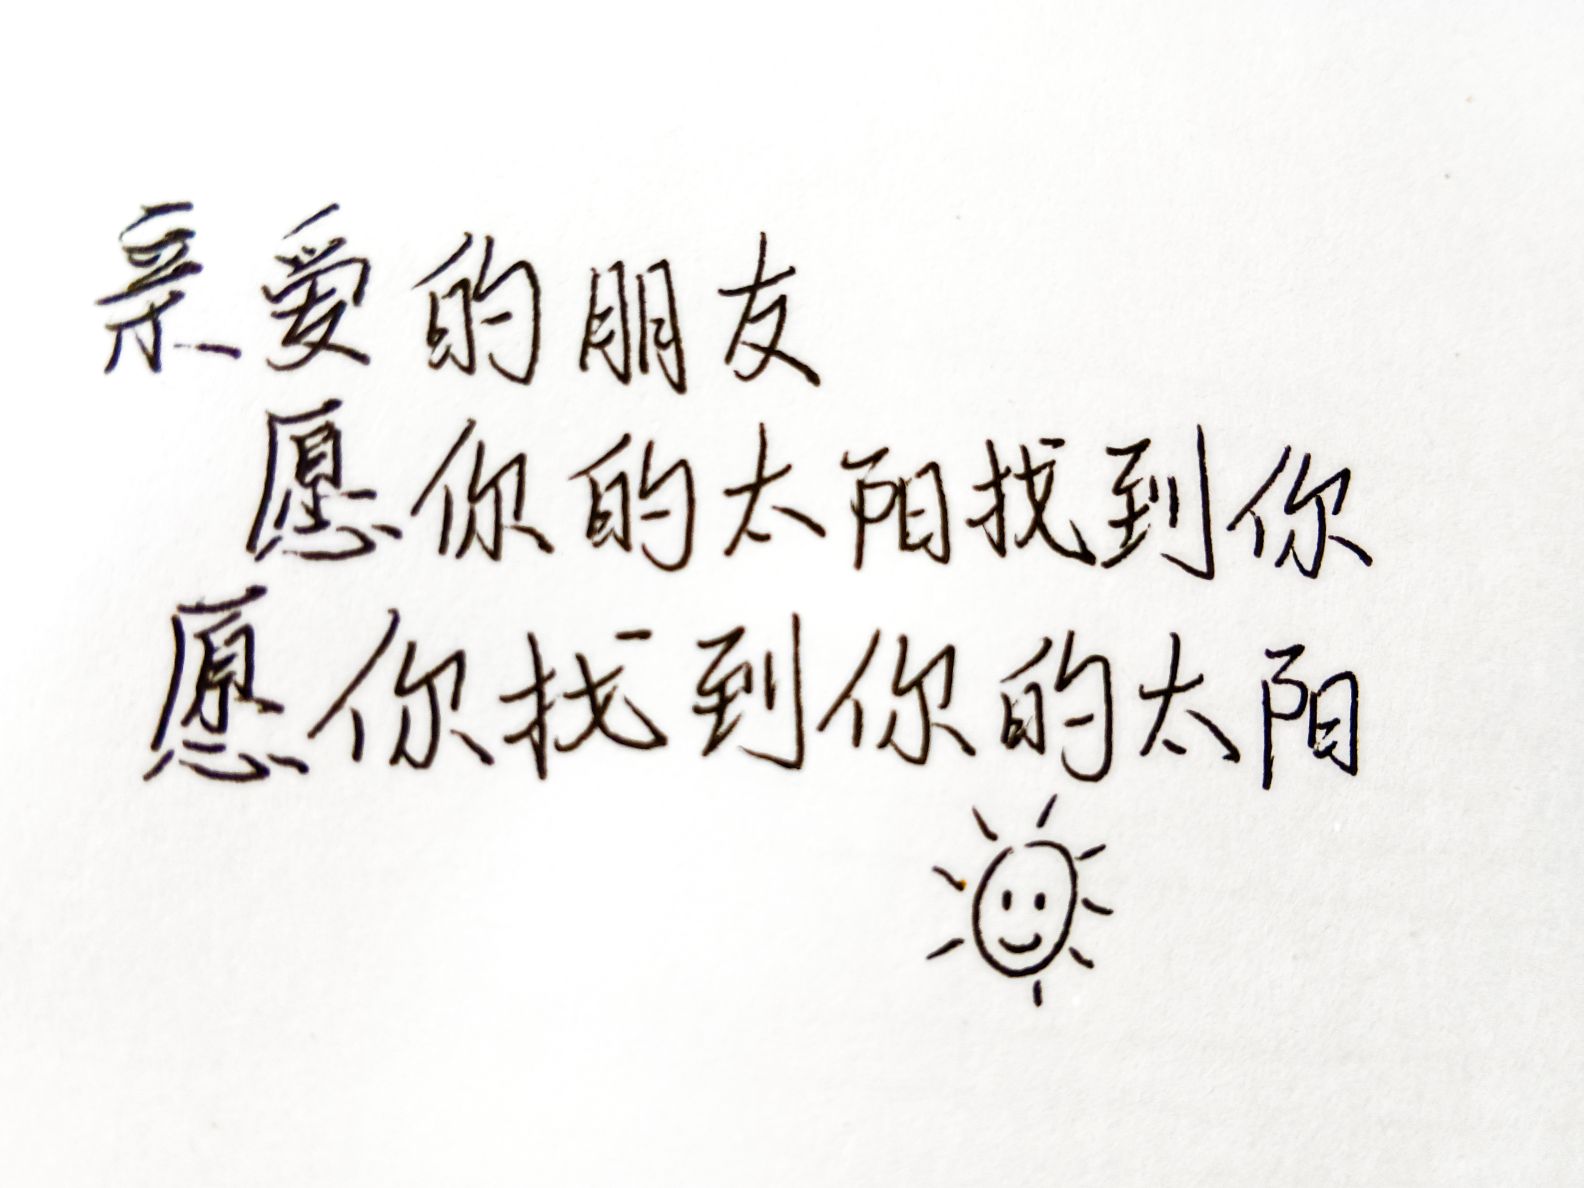 亲爱的朋友
愿你的太阳找到你
愿你找到你的太阳